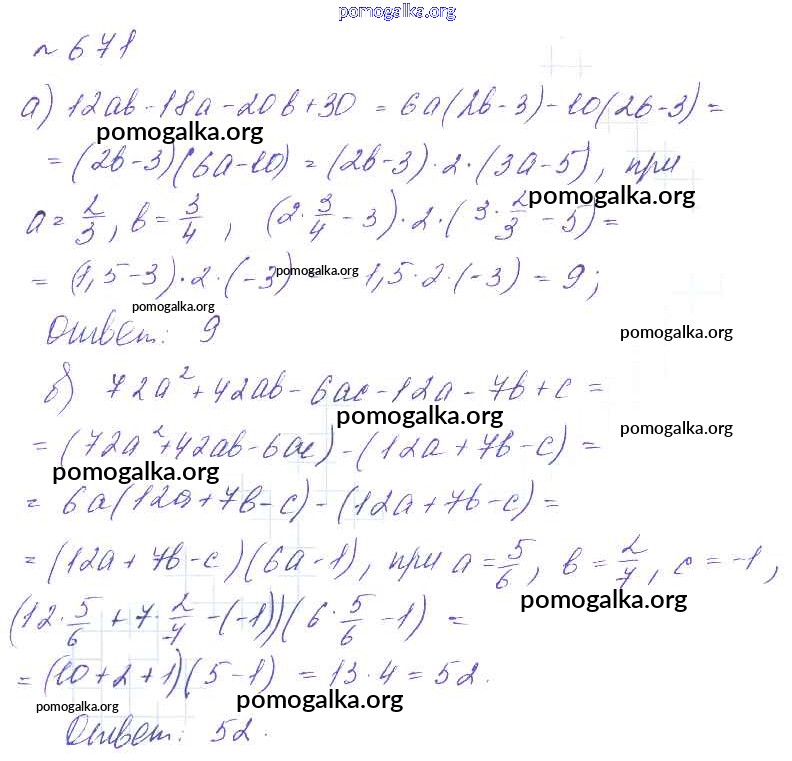 pomogalka.org
№ 671
а) 12ab - 18a - 20b + 30 = 6a(2b - 3) - 10(2b - 3) =
pomogalka.org
= (2b - 3)(6a - 10) = (2b - 3) · 2 · (3a - 5), при
pomogalka.org
a = 2/3, b = 3/4, (2 · 3/4 - 3) · 2 · (3 · 2/3 - 5) =
= (1,5 - 3) · 2 · (-3) = -1,5 · 2 · (-3) = 9;
pomogalka.org
pomogalka.org
Ответ: 9
pomogalka.org
б) 72a² + 42ab - 6ac - 12a - 7b + c =
pomogalka.org
pomogalka.org
= (72a² + 42ab - 6ac) - (12a + 7b - c) =
pomogalka.org
= 6a(12a + 7b - c) - (12a + 7b - c) =
= (12a + 7b - c)(6a - 1), при a = 5/6, b = 2/7, c = -1,
pomogalka.org
(12 · 5/6 + 7 · 2/7 - (-1))(6 · 5/6 - 1) =
= (10 + 2 + 1)(5 - 1) = 13 · 4 = 52.
pomogalka.org
pomogalka.org
Ответ: 52.